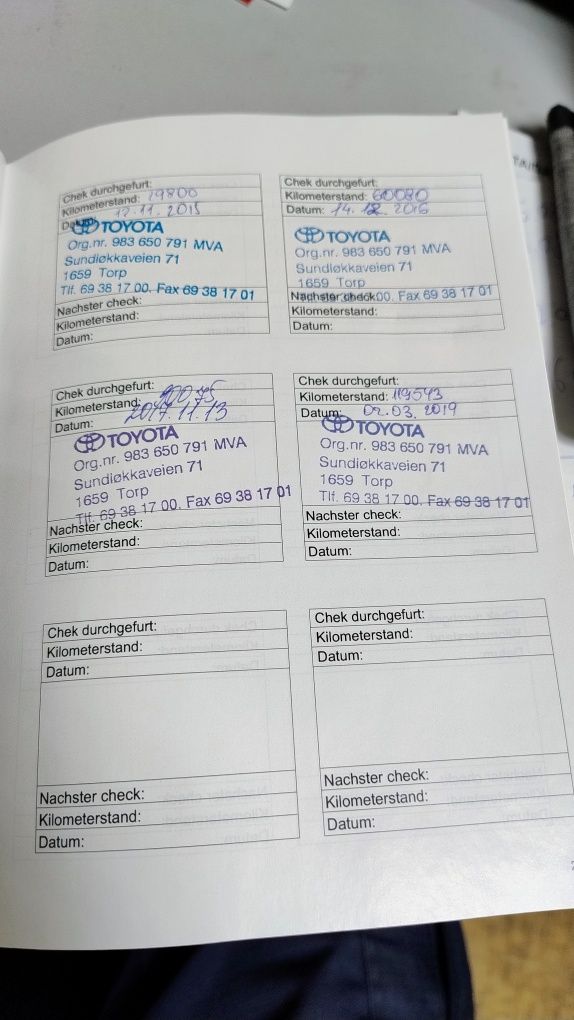 Chek durchgefurt:
Kilometerstand: 19800
Datum: 12.11.2015
TOYOTA
Org.nr. 983 650 791 MVA
Sundløkkaveien 71
1659 Torp
Tlf. 69 38 17 00. Fax 69 38 17 01
Nachster check:
Kilometerstand:
Datum:
Chek durchgefurt:
Kilometerstand: 60080
Datum: 14.12.2016
TOYOTA
Org.nr. 983 650 791 MVA
Sundløkkaveien 71
1659 Torp
Nachster check: 00. Fax 69 38 17 01
Kilometerstand:
Datum:
Chek durchgefurt:
Kilometerstand:
Datum: 2017.11.13
TOYOTA
Org.nr. 983 650 791 MVA
Sundløkkaveien 71
1659 Torp
Tlf. 69 38 17 00. Fax 69 38 17 01
Nachster check:
Kilometerstand:
Datum:
Chek durchgefurt:
Kilometerstand: 119543
Datum: 02.03.2019
TOYOTA
Org.nr. 983 650 791 MVA
Sundløkkaveien 71
1659 Torp
Tlf. 69 38 17 00. Fax 69 38 17 01
Nachster check:
Kilometerstand:
Datum:
Chek durchgefurt:
Kilometerstand:
Datum:
Nachster check:
Kilometerstand:
Datum:
Chek durchgefurt:
Kilometerstand:
Datum:
Nachster check:
Kilometerstand:
Datum: